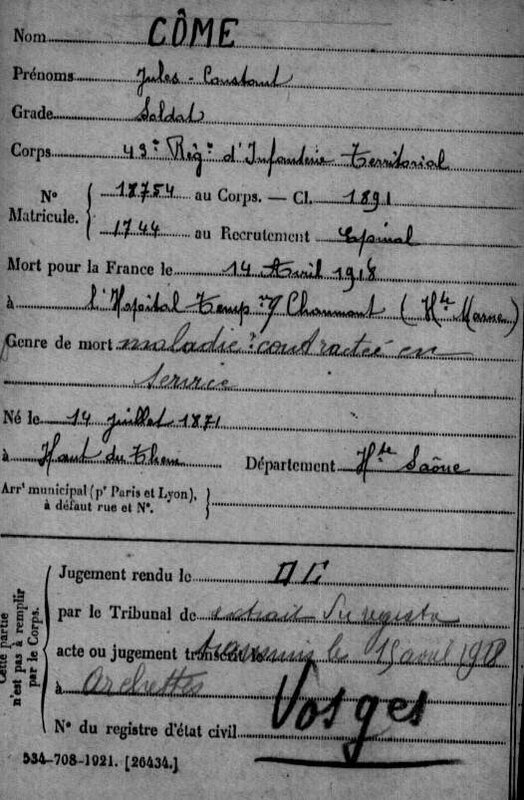 Nom CÔME
Prénoms Jules - Constant
Grade Soldat
Corps 43e Régt d'Infanterie Territorial
N° Matricule. { 18754 au Corps. — Cl. 1891
1744 au Recrutement Epinal
Mort pour la France le 14 Avril 1918
à l'Hopital Tempre Chaumont (Hte Marne)
Genre de mort maladie contractée en
service
Né le 14 juillet 1871
à Haut du Them Département Hte Saône
Arrt municipal (pr Paris et Lyon),
à défaut rue et N°.
Cette partie
n'est pas à remplir
par le Corps.
Jugement rendu le
par le Tribunal de extrait du registre
acte ou jugement transcrit le transmis le 15 avril 1918
à Archettes
Vosges
N° du registre d'état civil
534-708-1921. [26434.]